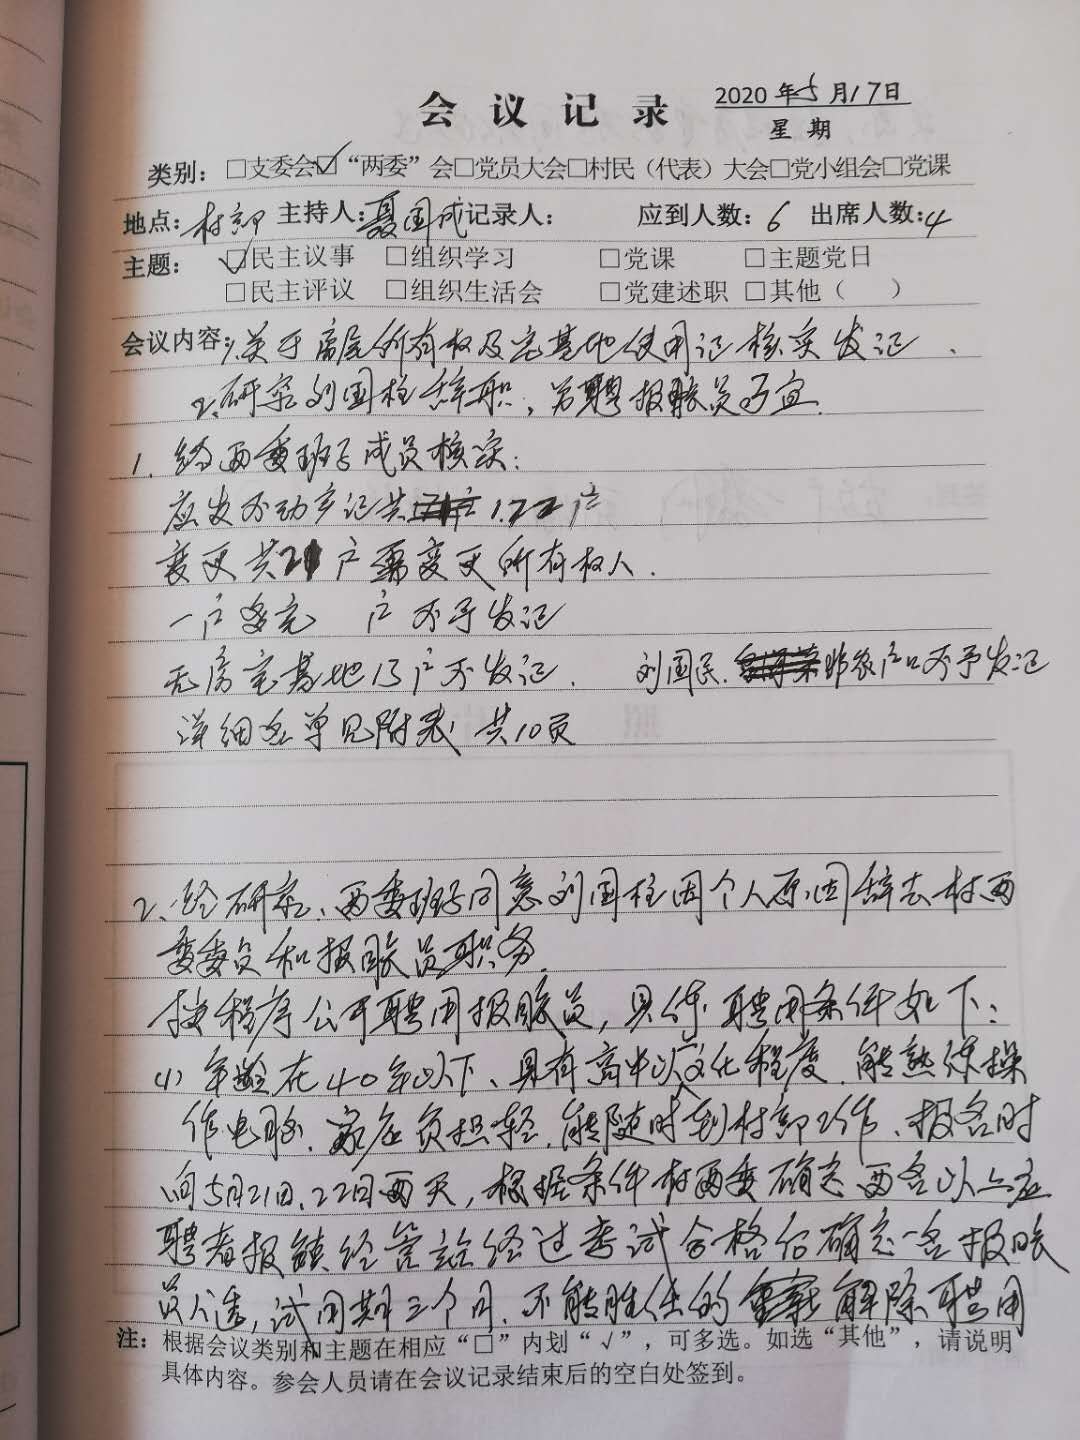 会议记录 2020年5月17日
星期
类别：□支委会☑“两委”会□党员大会□村民（代表）大会□党小组会□党课
地点：村部 主持人：聂国成 记录人： 应到人数：6 出席人数：4
主题： ☑民主议事 □组织学习 □党课 □主题党日
□民主评议 □组织生活会 □党建述职 □其他（ ）
会议内容：1.关于房屋所有权及宅基地使用证核实发证.
2.研究刘国柱辞职，另聘报账员事宜.
1.经两委班子成员核实：
应发不动产证共122户
变更共21户需变更所有权人.
一户多宅 户不予发证
无房宅基地15户不发证. 刘国民.非农户口不予发证
详细名单见附表 共10页
2、经研究、两委班子同意刘国柱因个人原因辞去村两
委委员和报账员职务.
按程序公开聘用报账员，具体聘用条件如下：
(1)年龄在40年以下、具有高中以文化程度.能熟练操
作电脑.家庭负担轻.能随时到村部工作、报名时
间5月21日、22日两天，根据条件村两委确定两名以上应
聘者报镇经管站经过考试合格后确定一名报账
员人选，试用期三个月.不能胜任的解除聘用
注：根据会议类别和主题在相应“□”内划“√”，可多选。如选“其他”，请说明
具体内容。参会人员请在会议记录结束后的空白处签到。